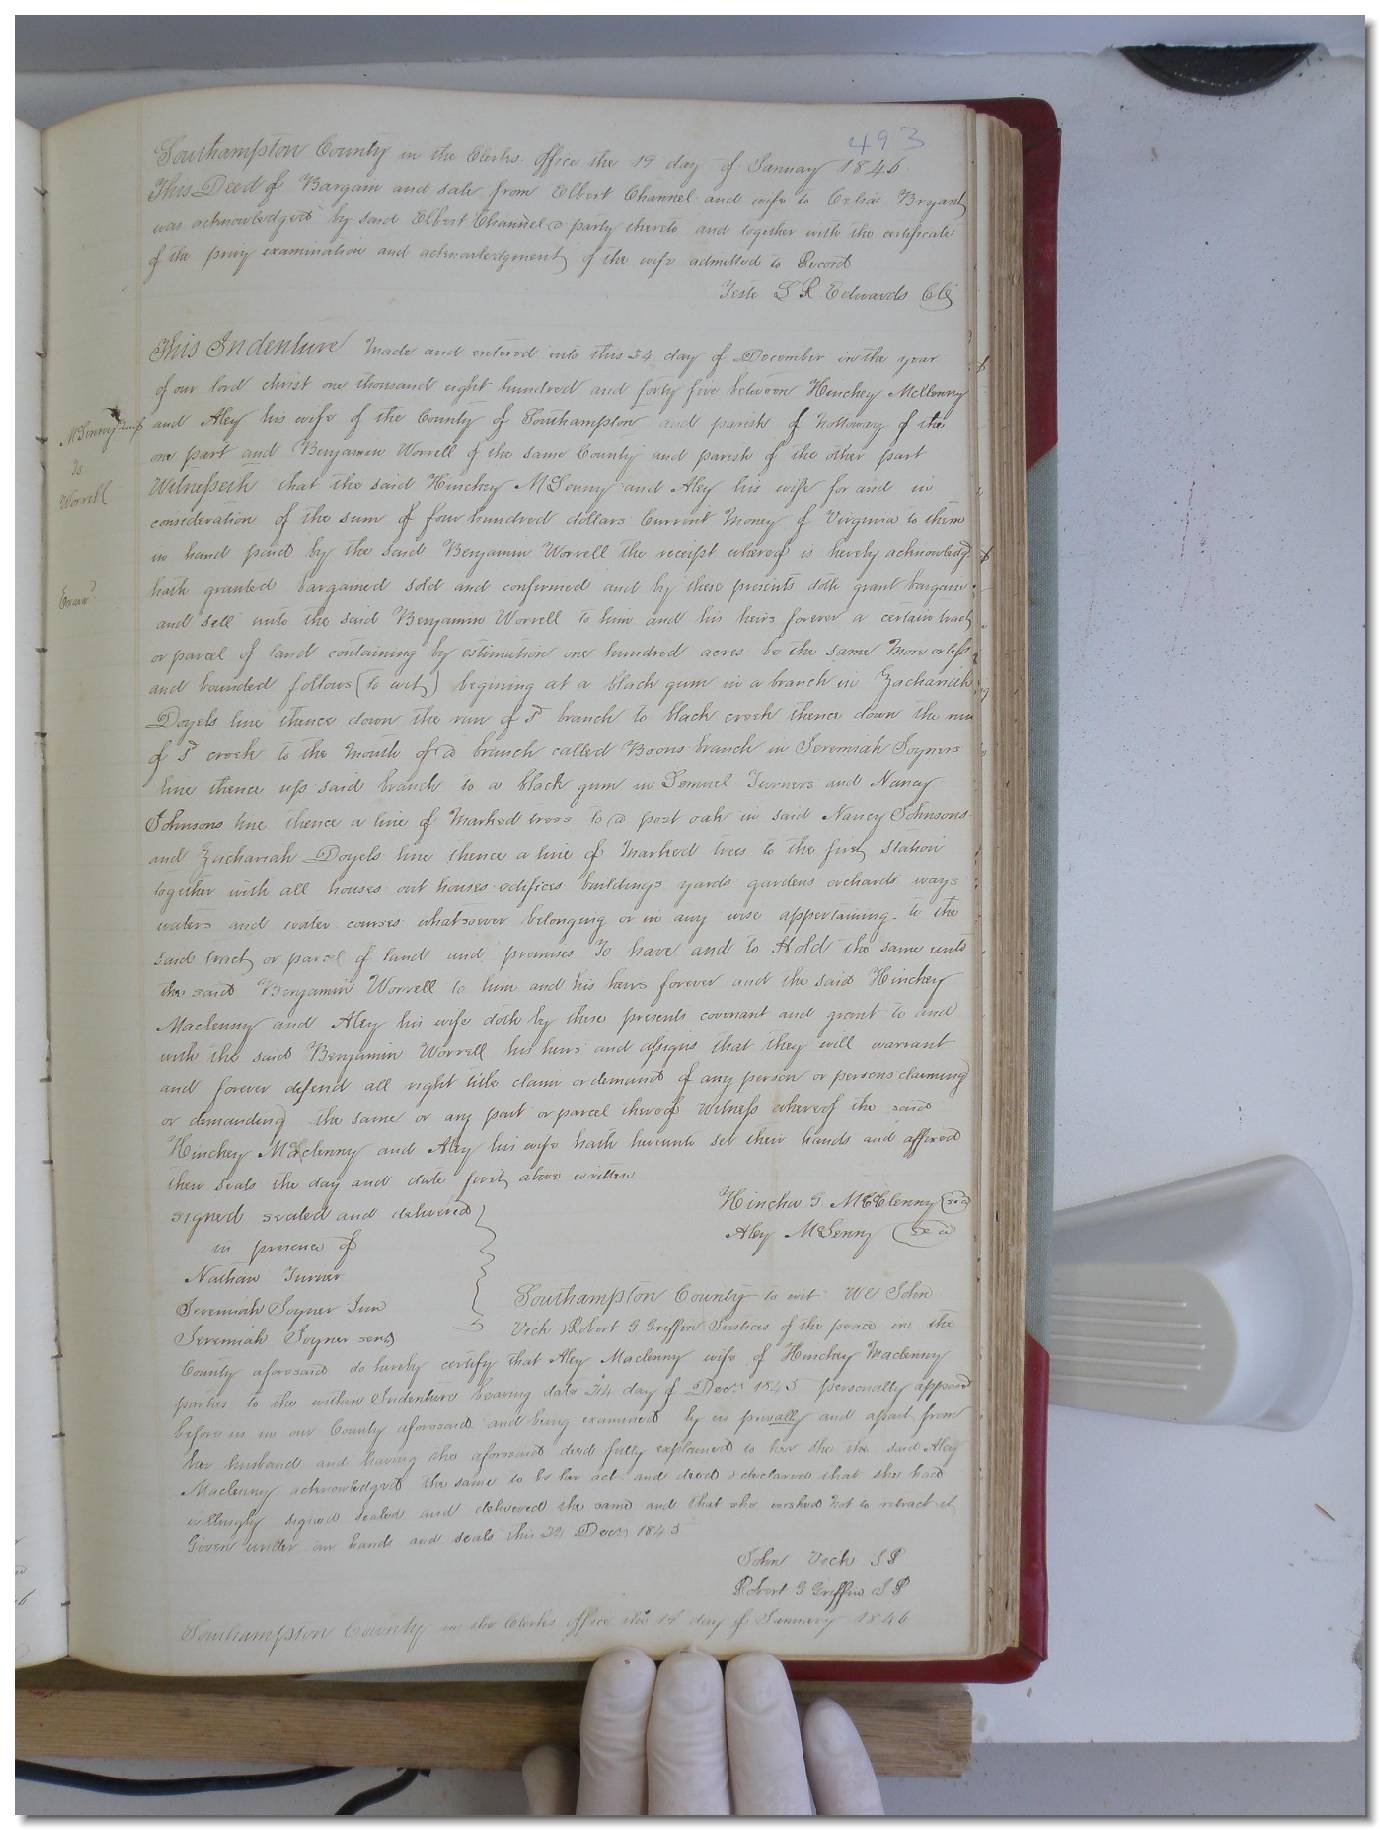 493
Southampton County in the Clerks Office the 19 day of January 1846
This Deed of Bargain and sale from Elbert Channel and wife to Bryant
was acknowledged by said Elbert Channel a party thereto and together with the certificate
of the privy examination and acknowledgment of the wife admitted to Record
Teste L R Edwards Clk
This Indenture Made and entered into this 24 day of December in the year
of our lord christ one thousand eight hundred and forty five between Hinchey McClenny
and Aley his wife of the County of Southampton and parish of Nottoway of the
one part and Benjamin Worrell of the same County and parish of the other part
McLenny & wife
To
Worrell
Witnesseth that the said Hinchey McLenny and Aley his wife for and in
consideration of the sum of four hundred dollars Current Money of Virginia to them
in hand paid by the said Benjamin Worrell the receipt whereof is hereby acknowledg
Examd
hath granted bargained sold and confirmed and by these presents doth grant bargain
and sell unto the said Benjamin Worrell to him and his heirs forever a certain tract
or parcel of land containing by estimation one hundred acres be the same More or less
and bounded follows (to wit) begining at a black gum in a branch in Zachariah
Doyels line thence down the run of sd branch to black creek thence down the run
of sd creek to the Mouth of a branch called Boons branch in Jeremiah Joyners
line thence up said branch to a black gum in Lemuel Turners and Nancy
Johnsons line thence a line of Marked trees to a post oak in said Nancy Johnsons
and Zachariah Doyels line thence a line of Marked trees to the first station
together with all houses out houses edifices buildings yards gardens orchards ways
waters and water courses whatsoever belonging or in any wise appertaining to the
said tract or parcel of land and premises To have and to Hold the same unto
the said Benjamin Worrell to him and his heirs forever and the said Hinchey
Maclenny and Aley his wife doth by these presents covenant and grant to and
with the said Benjamin Worrell his heirs and assigns that they will warrant
and forever defend all right title claim or demand of any person or persons claiming
or demanding the same or any part or parcel thereof Witness whereof the said
Hinchey McClenny and Aley his wife hath hereunto set their hands and affixed
their seals the day and date first above written
Hincha G McClenny (seal)
signed sealed and delivered
Aley McLenny (seal)
in presence of
Nathan Turner
Jeremiah Joyner Jun
Jeremiah Joyner senr
Southampton County to wit We John
Vick & Robert G Griffin Justices of the peace in the
County aforesaid do hereby certify that Aley Maclenny wife of Hinchey Maclenny
parties to the within Indenture bearing date 24 day of Decr 1845 personally appeared
before us in our County aforesaid and being examined by us privally and apart from
her husband and having the aforesaid deed fully explained to her she the said Aley
Maclenny acknowledged the same to be her act and deed & declared that she had
willingly signed sealed and delivered the same and that she wished not to retract it
Given under our hands and seals this 24 Decr 1845
John Vick J P
Robert G Griffin J P
Southampton County in the Clerks office the 19 day of January 1846